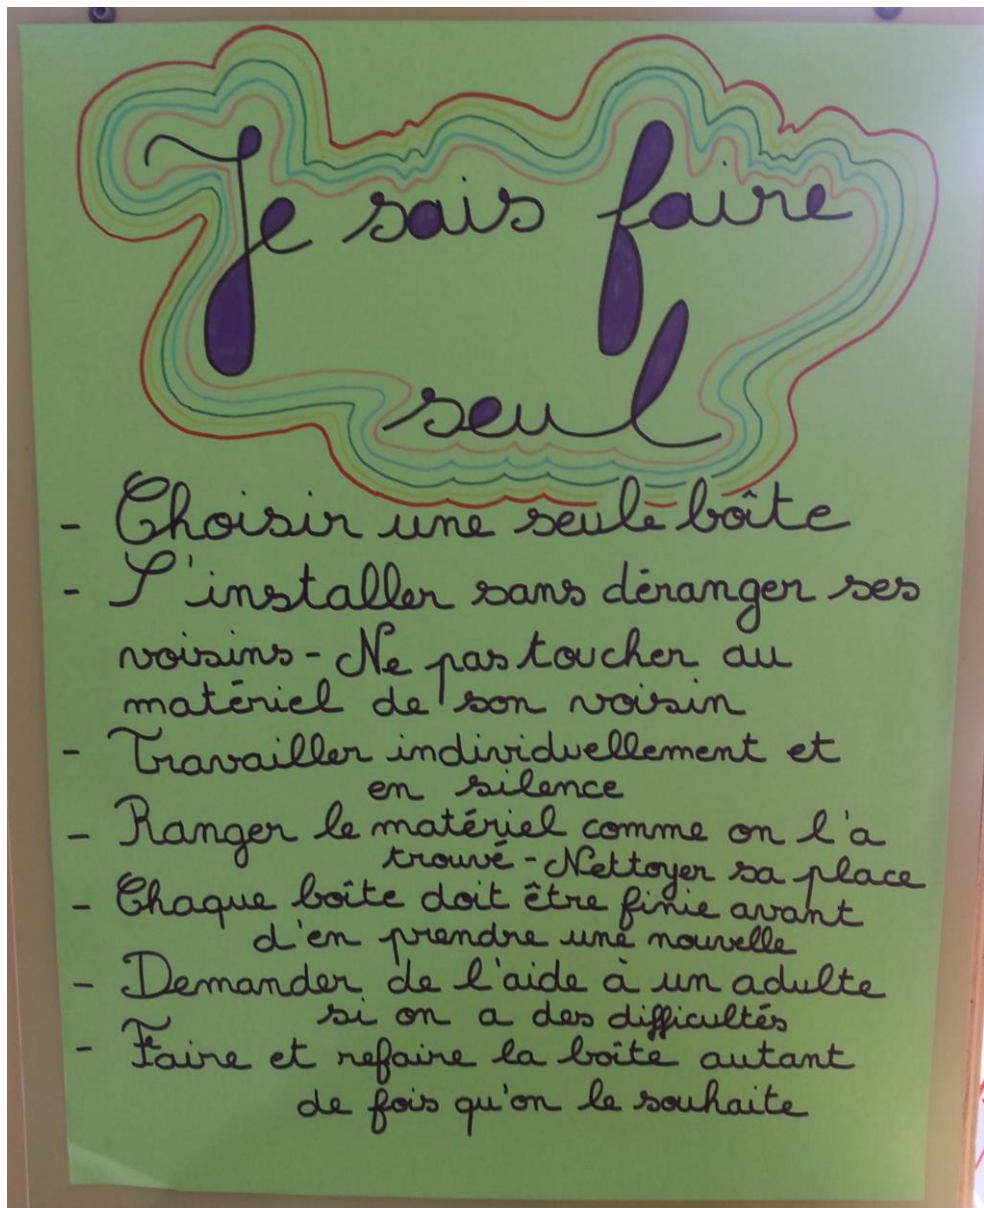 Je sais faire
seul
- Choisir une seule boîte
- S'installer sans déranger ses
voisins - Ne pas toucher au
matériel de son voisin
- Travailler individuellement et
en silence
- Ranger le matériel comme on l'a
trouvé - Nettoyer sa place
- Chaque boîte doit être finie avant
d'en prendre une nouvelle
- Demander de l'aide à un adulte
si on a des difficultés
- Faire et refaire la boîte autant
de fois qu'on le souhaite